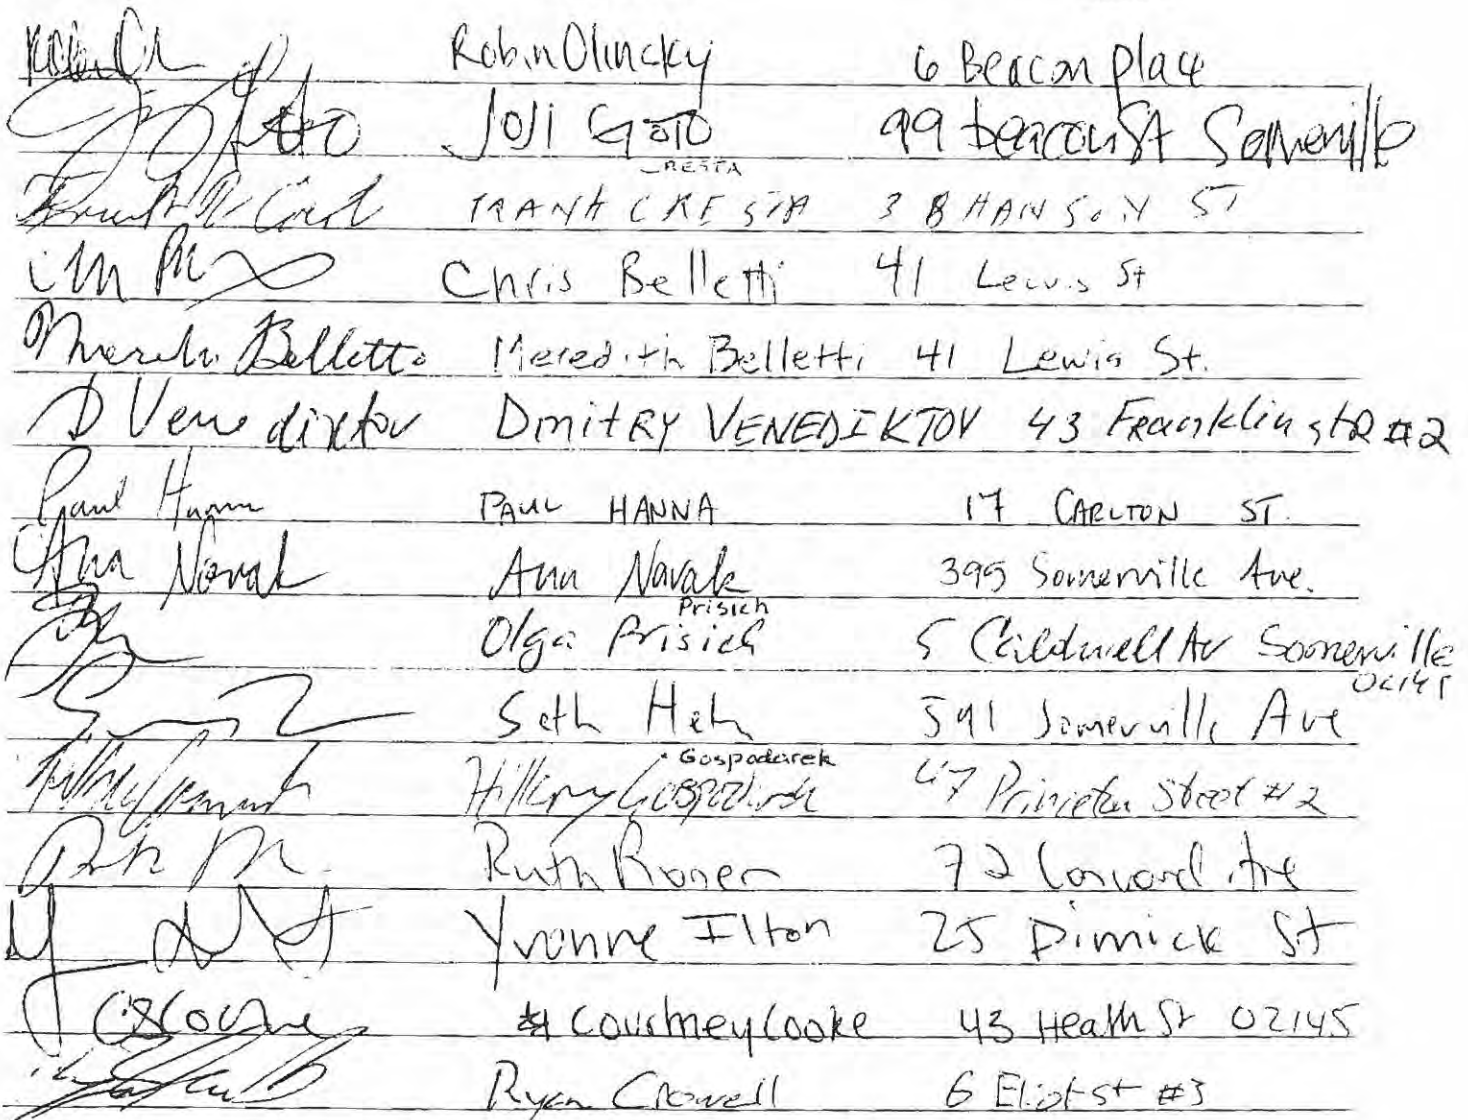 Robin Olincky 6 Beacon Place
Goto Joji Goto 99 beacon St Somerville
CRESTA
FRANK CRESTA 38 HANSON ST
Chris Belletti 41 Lewis St
Belletti Meredith Belletti 41 Lewis St.
D Venediktov Dmitry VENEDIKTOV 43 Franklin st #2
Paul Hanna PAUL HANNA 17 CARLTON ST.
Ana Novak Ana Novak 395 Somerville Ave.
Prisich
Olga Prisich 5 Caldwell Av Somerville
02145
Seth 591 Somerville Ave
Gospodarek
Hillary Gospodarek 47 Princeton Street #2
Ruth 72 Concord Ave
Yvonne Ilton 25 Dimick St
Courtney Cooke 43 Heath St 02145
Ryan Crowell 6 Eliot st #3